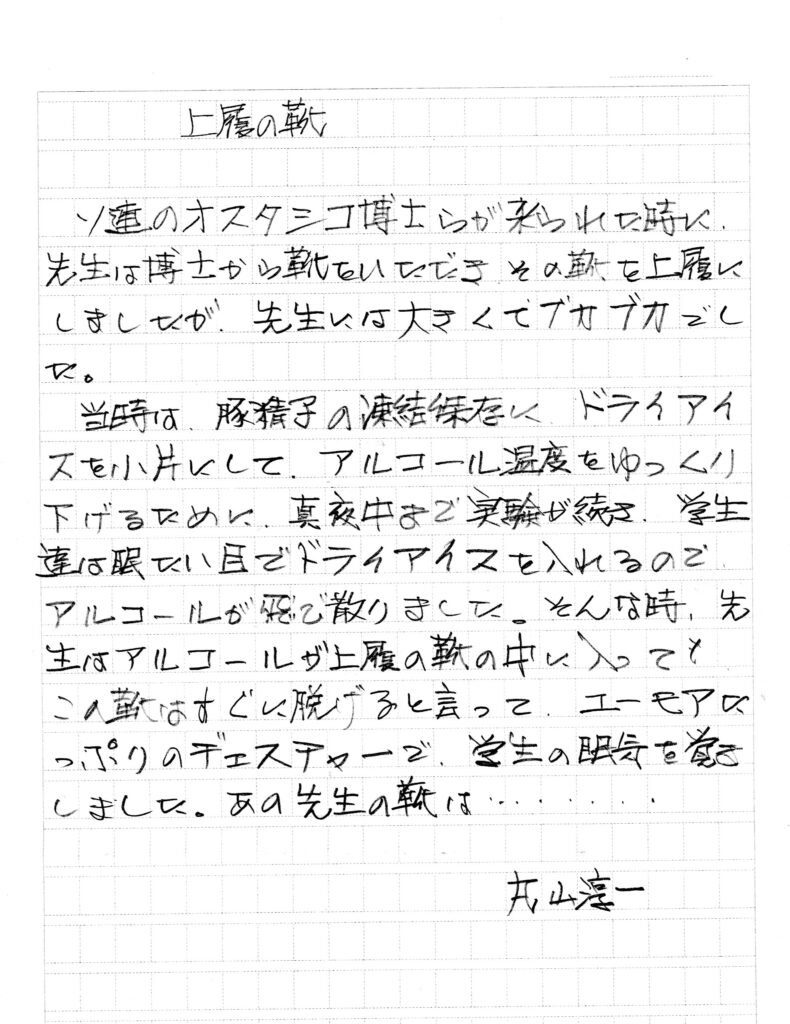 上履の靴
ソ連のオスタシコ博士らが来られた時に、
先生は博士から靴をいただき その靴を上履に
しましたが、先生には大きくてブカブカでし
た。
当時は、豚精子の凍結保存に、ドライアイ
スを小片にして、アルコール温度をゆっくり
下げるために、真夜中まで実験が続き、学生
達は眠たい目でドライアイスを入れるので
アルコールが飛び散りました。そんな時、先
生はアルコールが上履の靴の中に入っても
この靴はすぐに脱げると言って、ユーモアた
っぷりのヂェスチャーで、学生の眠気を覚ま
しました。あの先生の靴は………
丸山淳一